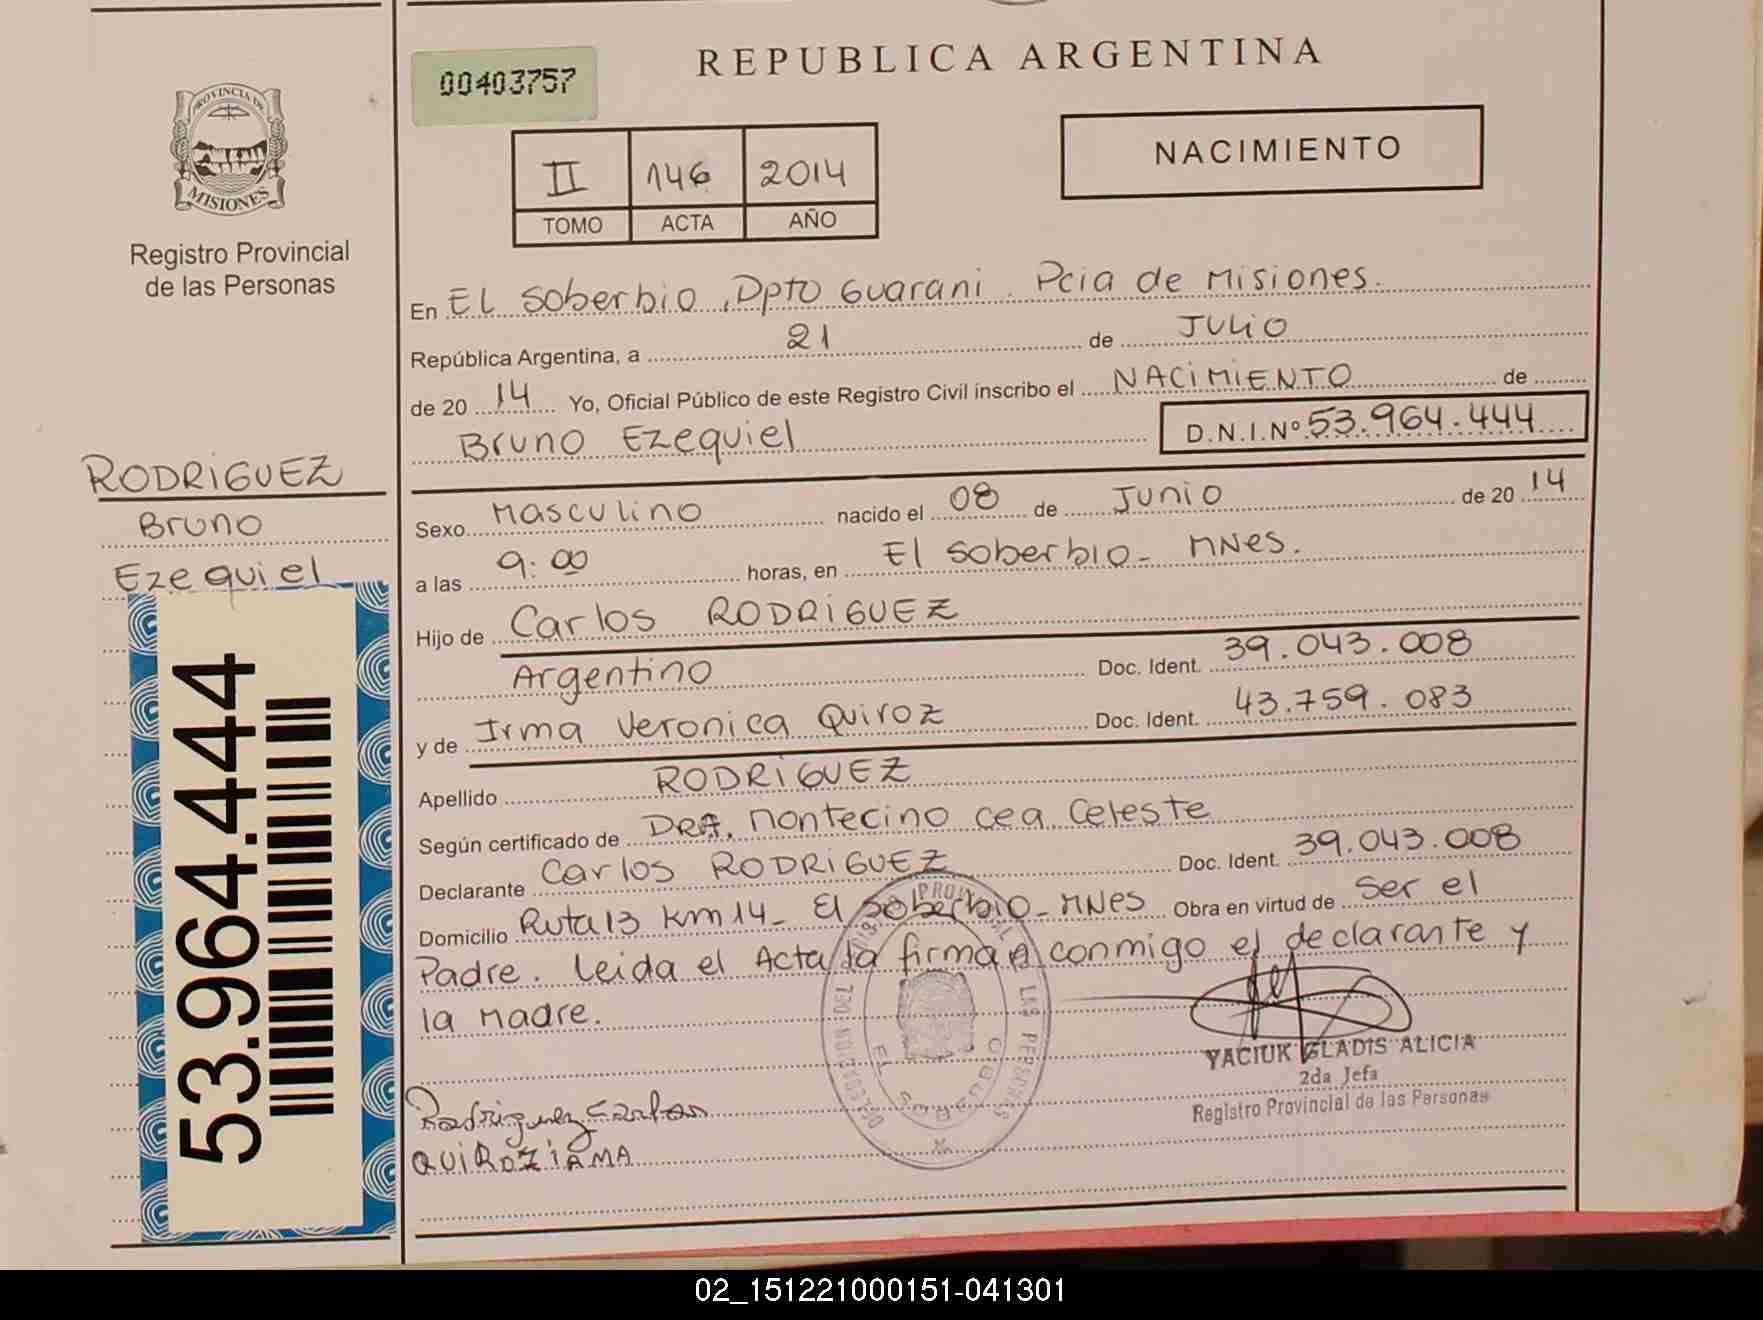 PROVINCIA DE
MISIONES
Registro Provincial
de las Personas
RODRIGUEZ
Bruno
Ezequiel
53.964.444
00403757
REPUBLICA ARGENTINA
II 146 2014
TOMO ACTA AÑO
NACIMIENTO
En EL Soberbio, Dpto Guarani. Pcia de Misiones.
República Argentina, a 21 de JULIO
de 20 14 Yo, Oficial Público de este Registro Civil inscribo el NACIMIENTO de
Bruno Ezequiel D.N.I.Nº 53.964.444
Sexo Masculino nacido el 08 de Junio de 20 14
a las 9:00 horas, en El Soberbio - MNes.
Hijo de Carlos RODRIGUEZ
Argentino Doc. Ident. 39.043.008
y de Irma Veronica Quiroz Doc. Ident. 43.759.083
Apellido RODRIGUEZ
Según certificado de DRA. Montecino Cea Celeste
Declarante Carlos RODRIGUEZ Doc. Ident. 39.043.008
Domicilio Ruta 13 Km 14 - El Soberbio - MNes Obra en virtud de Ser el
Padre. Leida el Acta la firman conmigo el declarante y
la Madre.
YACIUK GLADIS ALICIA
2da Jefa
Registro Provincial de las Personas
Rodriguez Carlos
QUIROZ IRMA
02_151221000151-041301